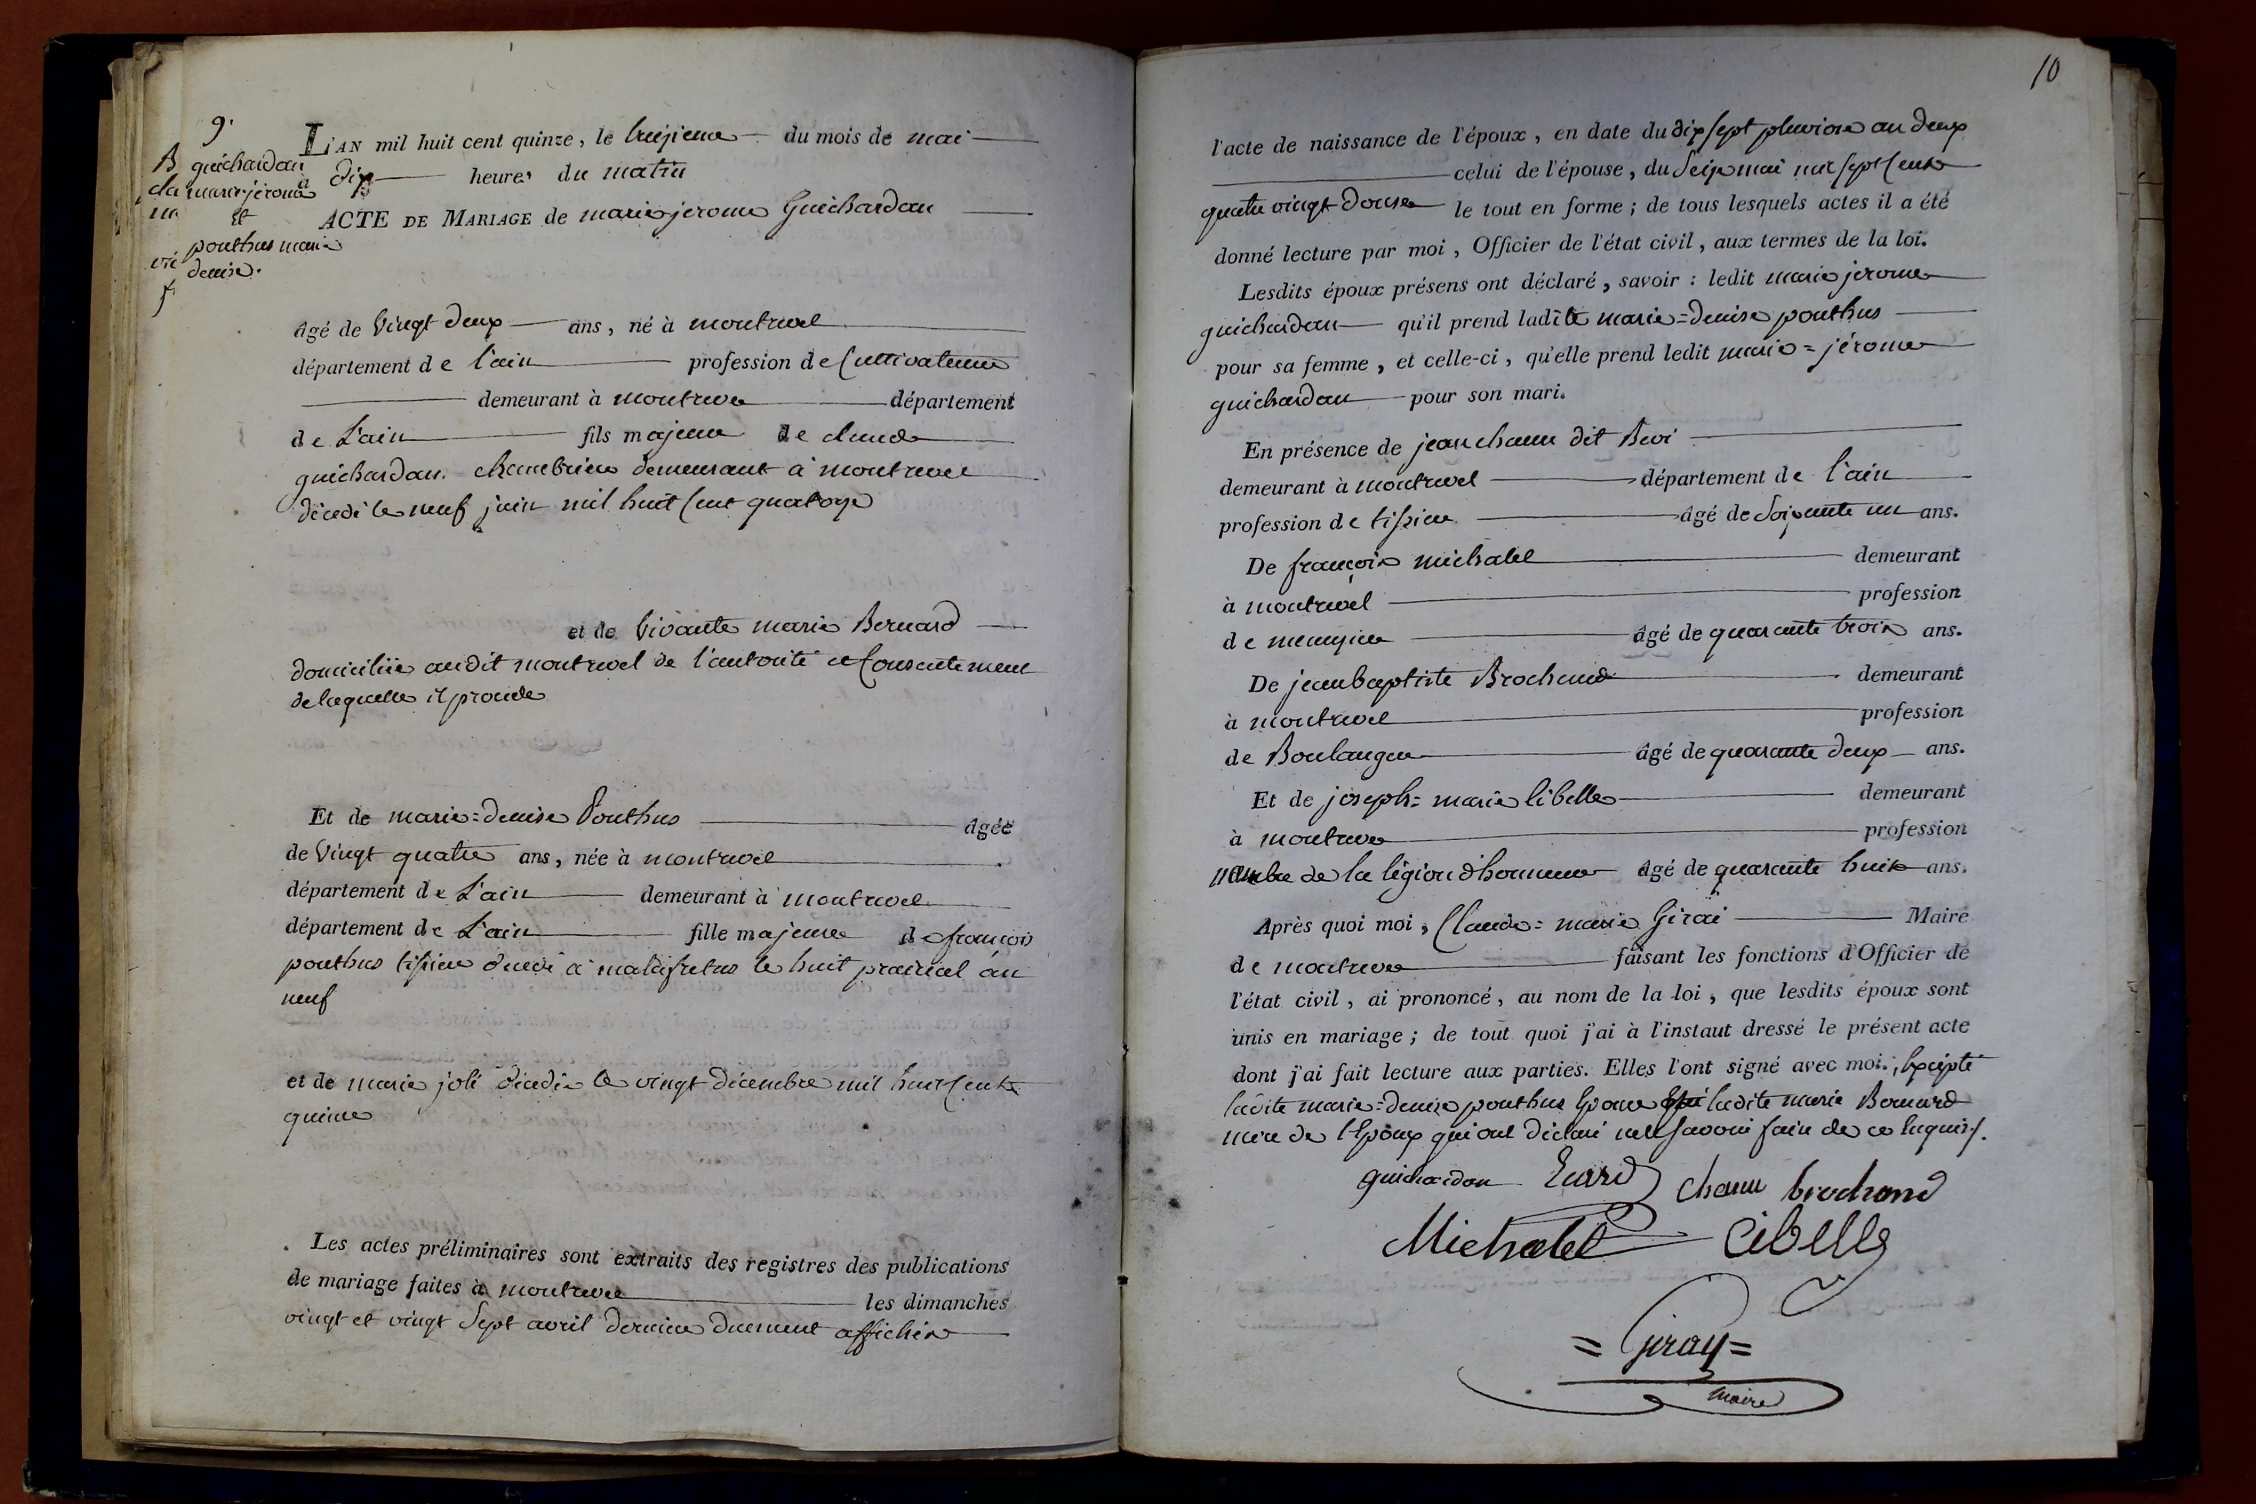 9.
guichardan
marie jérome
et
pouthus marie
denise.
L'AN mil huit cent quinze, le treizieme du mois de mai
à dix heures du matin
ACTE DE MARIAGE de marie jerome Guichardan
âgé de vingt deux ans, né à montrevel
département de l'ain profession de Cultivateur
demeurant à montrevel département
de L'ain fils majeur de claude
guichardan chambrier demeurant à montrevel
décédé le neuf juin mil huit Cent quatorze
et de vivante marie Bernard
domiciliée audit montrevel de l'autorité et Consentement
de laquelle il procede
Et de marie=denise Pouthus âgée
de vingt quatre ans, née à montrevel
département de L'ain demeurant à montrevel
département de L'ain fille majeure de françois
pouthus tissier décédé à malafretas le huit prairial an
neuf
et de marie joli décédée le vingt décembre mil huit Cent
quinze
Les actes préliminaires sont extraits des registres des publications
de mariage faites à montrevel les dimanches
vingt et vingt Sept avril dernier duement affichés
10
l'acte de naissance de l'époux, en date du dix sept pluviose an deux
celui de l'épouse, du Seize mai mil sept Cent
quatre vingt douze le tout en forme; de tous lesquels actes il a été
donné lecture par moi, Officier de l'état civil, aux termes de la loi.
Lesdits époux présens ont déclaré, savoir: ledit marie jerome
guichardan qu'il prend ladite marie=denise pouthus
pour sa femme, et celle-ci, qu'elle prend ledit marie=jérome
guichardan pour son mari.
En présence de jean chanu dit
demeurant à montrevel département de l'ain
profession de tissier âgé de Soixante un ans.
De françois michalet demeurant
à montrevel profession
de menuisier âgé de quarante trois ans.
De jean baptiste Brochand demeurant
à montrevel profession
de Boulanger âgé de quarante deux ans.
Et de joseph=marie libelle demeurant
à montrevel profession
membre de la légion d'honneur âgé de quarante huit ans.
Après quoi moi, Claude=marie Girai Maire
de montrevel faisant les fonctions d'Officier de
l'état civil, ai prononcé, au nom de la loi, que lesdits époux sont
unis en mariage; de tout quoi j'ai à l'instant dressé le présent acte
dont j'ai fait lecture aux parties. Elles l'ont signé avec moi, Excepté
ladite marie=denise pouthus Epouse et ladite marie Bernard
mere de l'Epoux qui ont déclaré ne Savoir faire de ce Requis
guichardon chanu brochand
Michalet Cibelle
=Giray=
maire